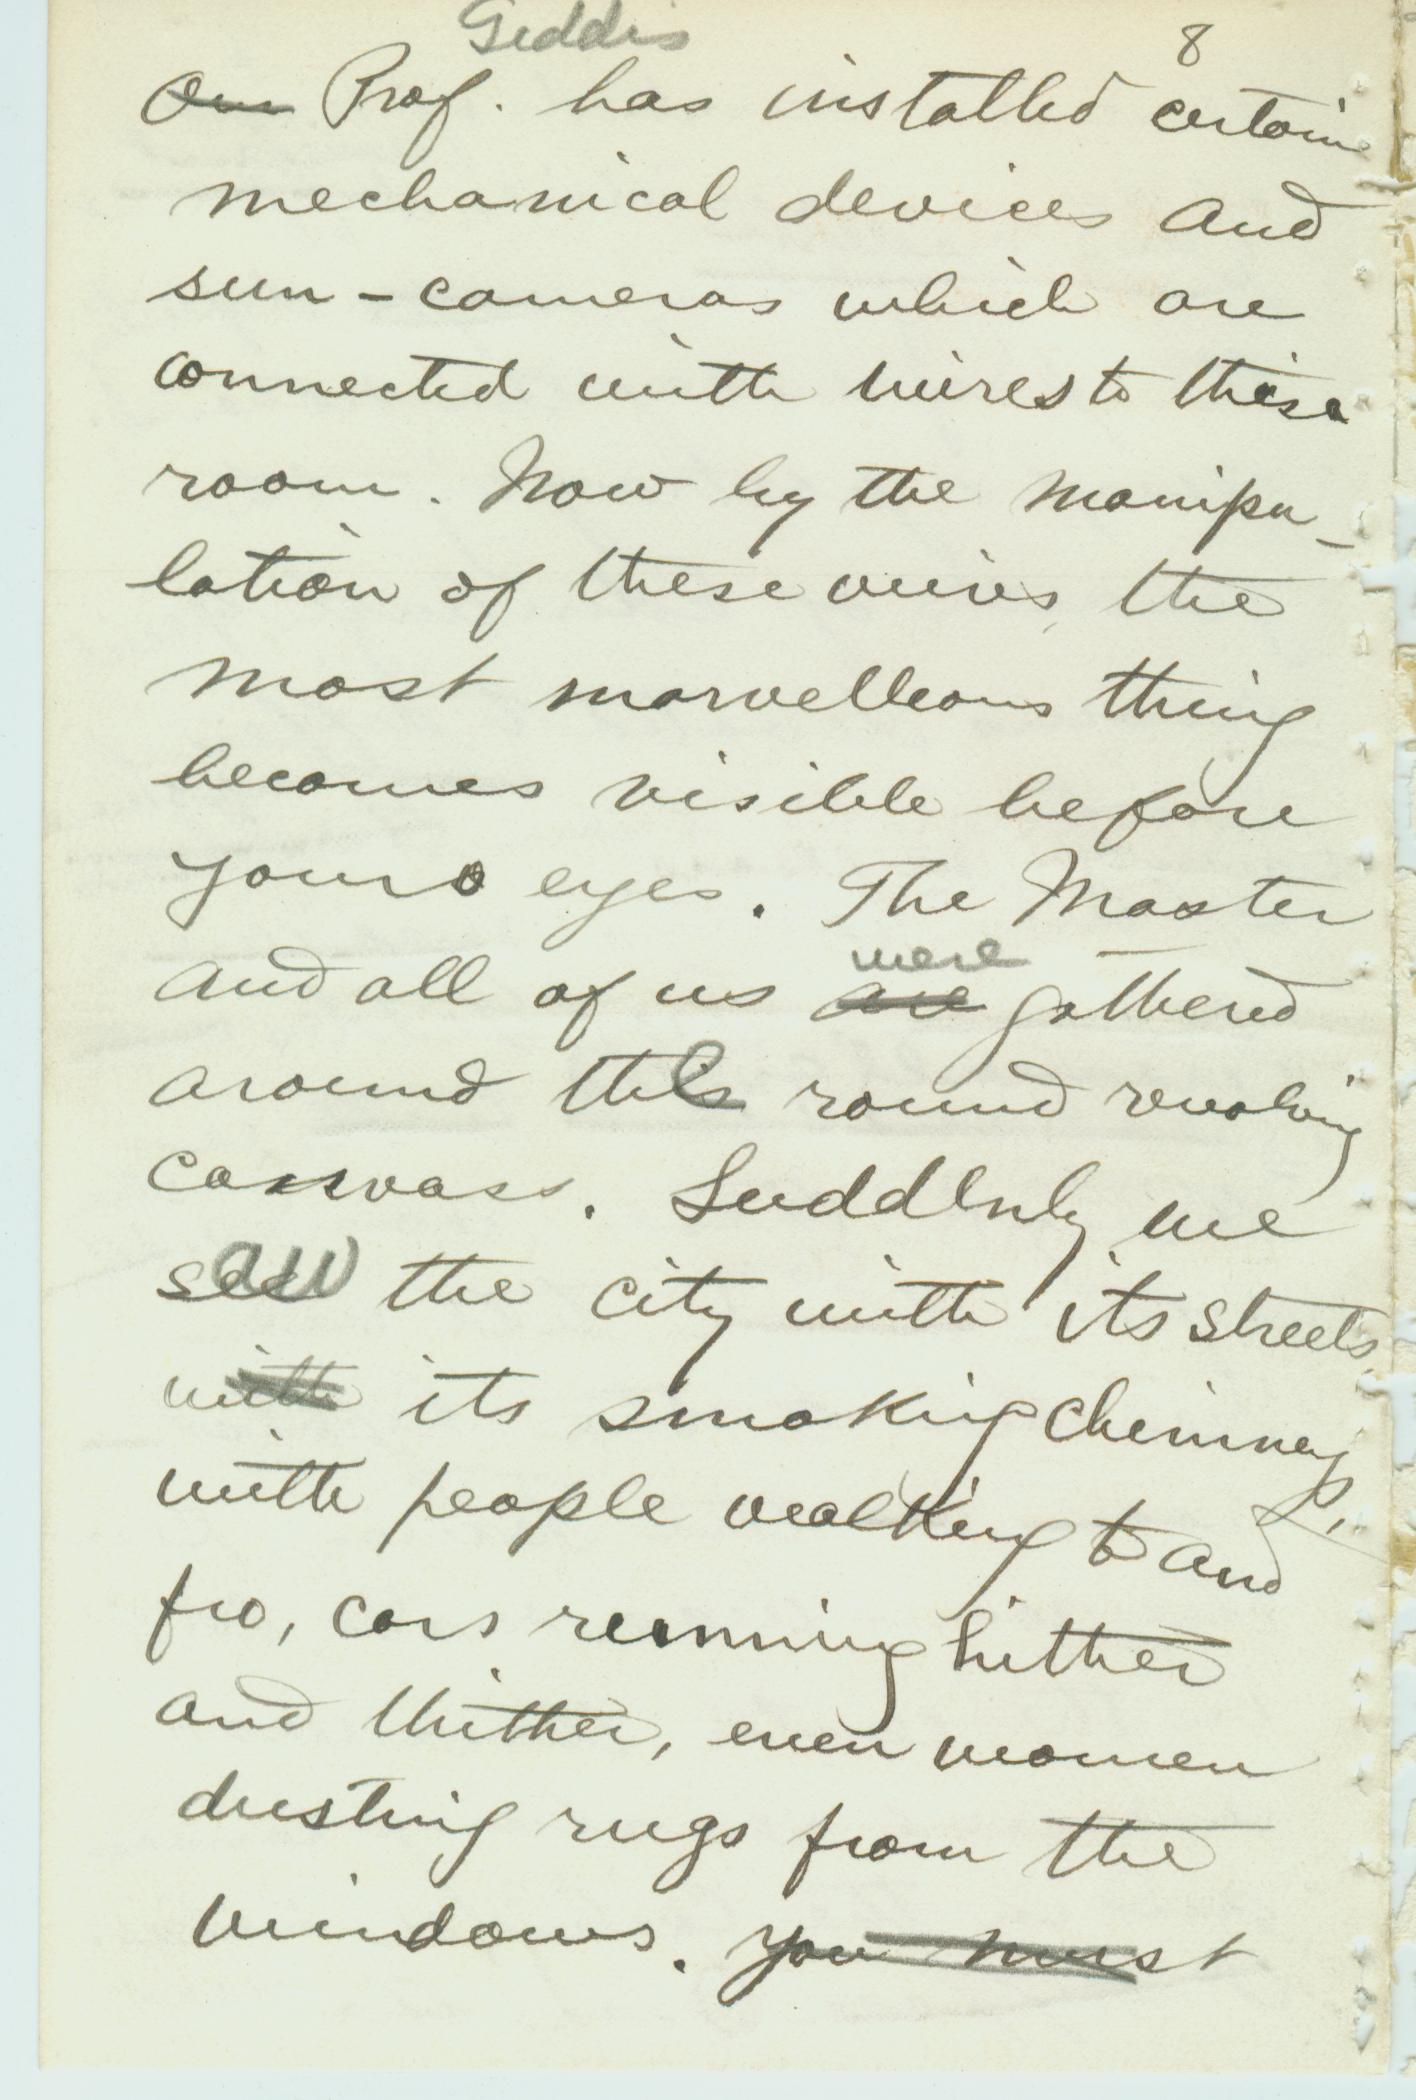 Geddis 8
Our Prof. has installed certain
mechanical devices and
sun-cameras which are
connected with wires to this
room. Now by the manipu-
lation of these wires, the
most marvelleous thing
becomes visible before
your eyes. The Master
were
and all of us are gathered
around this round revolving
canvass. Suddenly we
saw the city with its streets,
with its smoking chimneys,
with people walking to and
fro, cars running hither
and thither, even women
dusting rugs from the
windows. You must